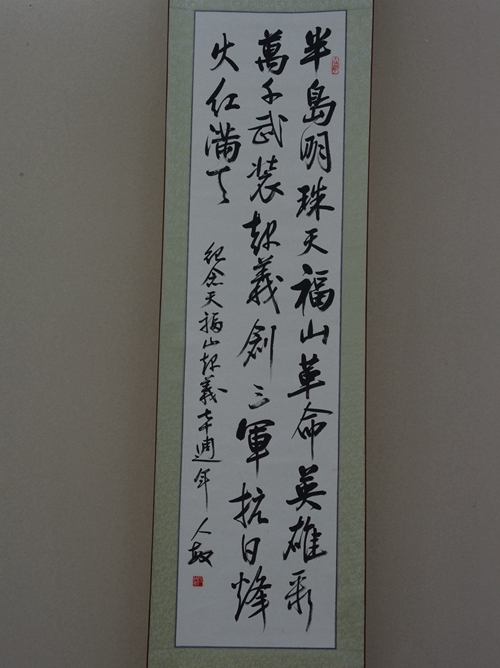 半島明珠天福山革命英雄
萬千武裝起義創三軍抗日烽
火红满天
纪念天福山起義七十週年